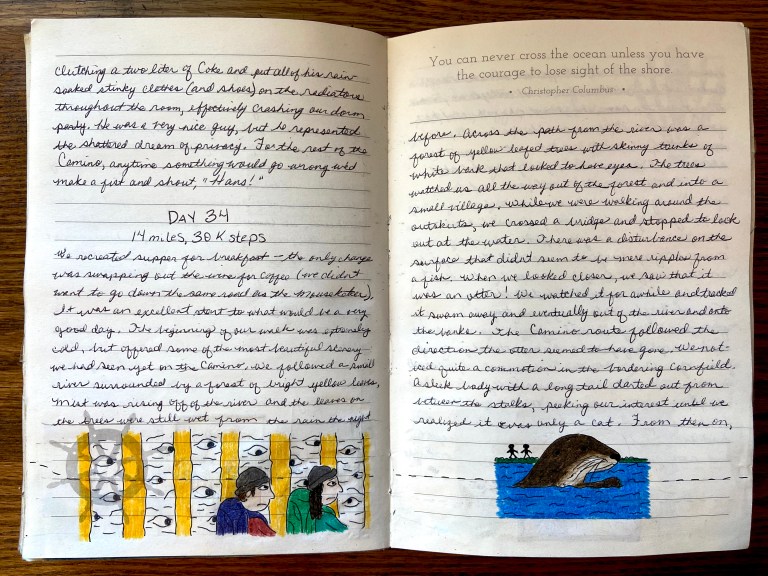 clutching a two liter of Coke and put all of his rain
soaked stinky clothes (and shoes) on the radiators
throughout the room, effectively crashing our dorm
party. He was a very nice guy, but he represented
the shattered dream of privacy. For the rest of the
Camino, anytime something would go wrong we'd
make a fist and shout, "Hans!"
DAY 34
14 miles, 30 K steps
We recreated supper for breakfast – the only change
was swapping out the wine for coffee (we didn't
want to go down the same road as the Mouseketeer).
It was an excellent start to what would be a very
good day. The beginning of our walk was extremely
cold, but offered some of the most beautiful scenery
we had seen yet on the Camino. We followed a small
river surrounded by a forest of bright yellow leaves,
Mist was rising off of the river and the leaves on
the trees were still wet from the rain the night
You can never cross the ocean unless you have
the courage to lose sight of the shore.
• Christopher Columbus •
before. Across the path from the river was a
forest of yellow leafed trees with skinny trunks of
white bark that looked to have eyes. The trees
watched us all the way out of the forest and into a
small village. While we were walking around the
outskirts, we crossed a bridge and stopped to look
out at the water. There was a disturbance on the
surface that didn't seem to be mere ripples from
a fish. When we looked closer, we saw that it
was an otter! We watched it for awhile and tracked
it swam away and eventually out of the river and onto
the banks. The Camino route followed the
direction the otter seemed to have gone. We not-
iced quite a commotion in the bordering cornfield.
A sleek body with a long tail darted out from
between the stalks, peaking our interest until we
realized it was only a cat. From then on,